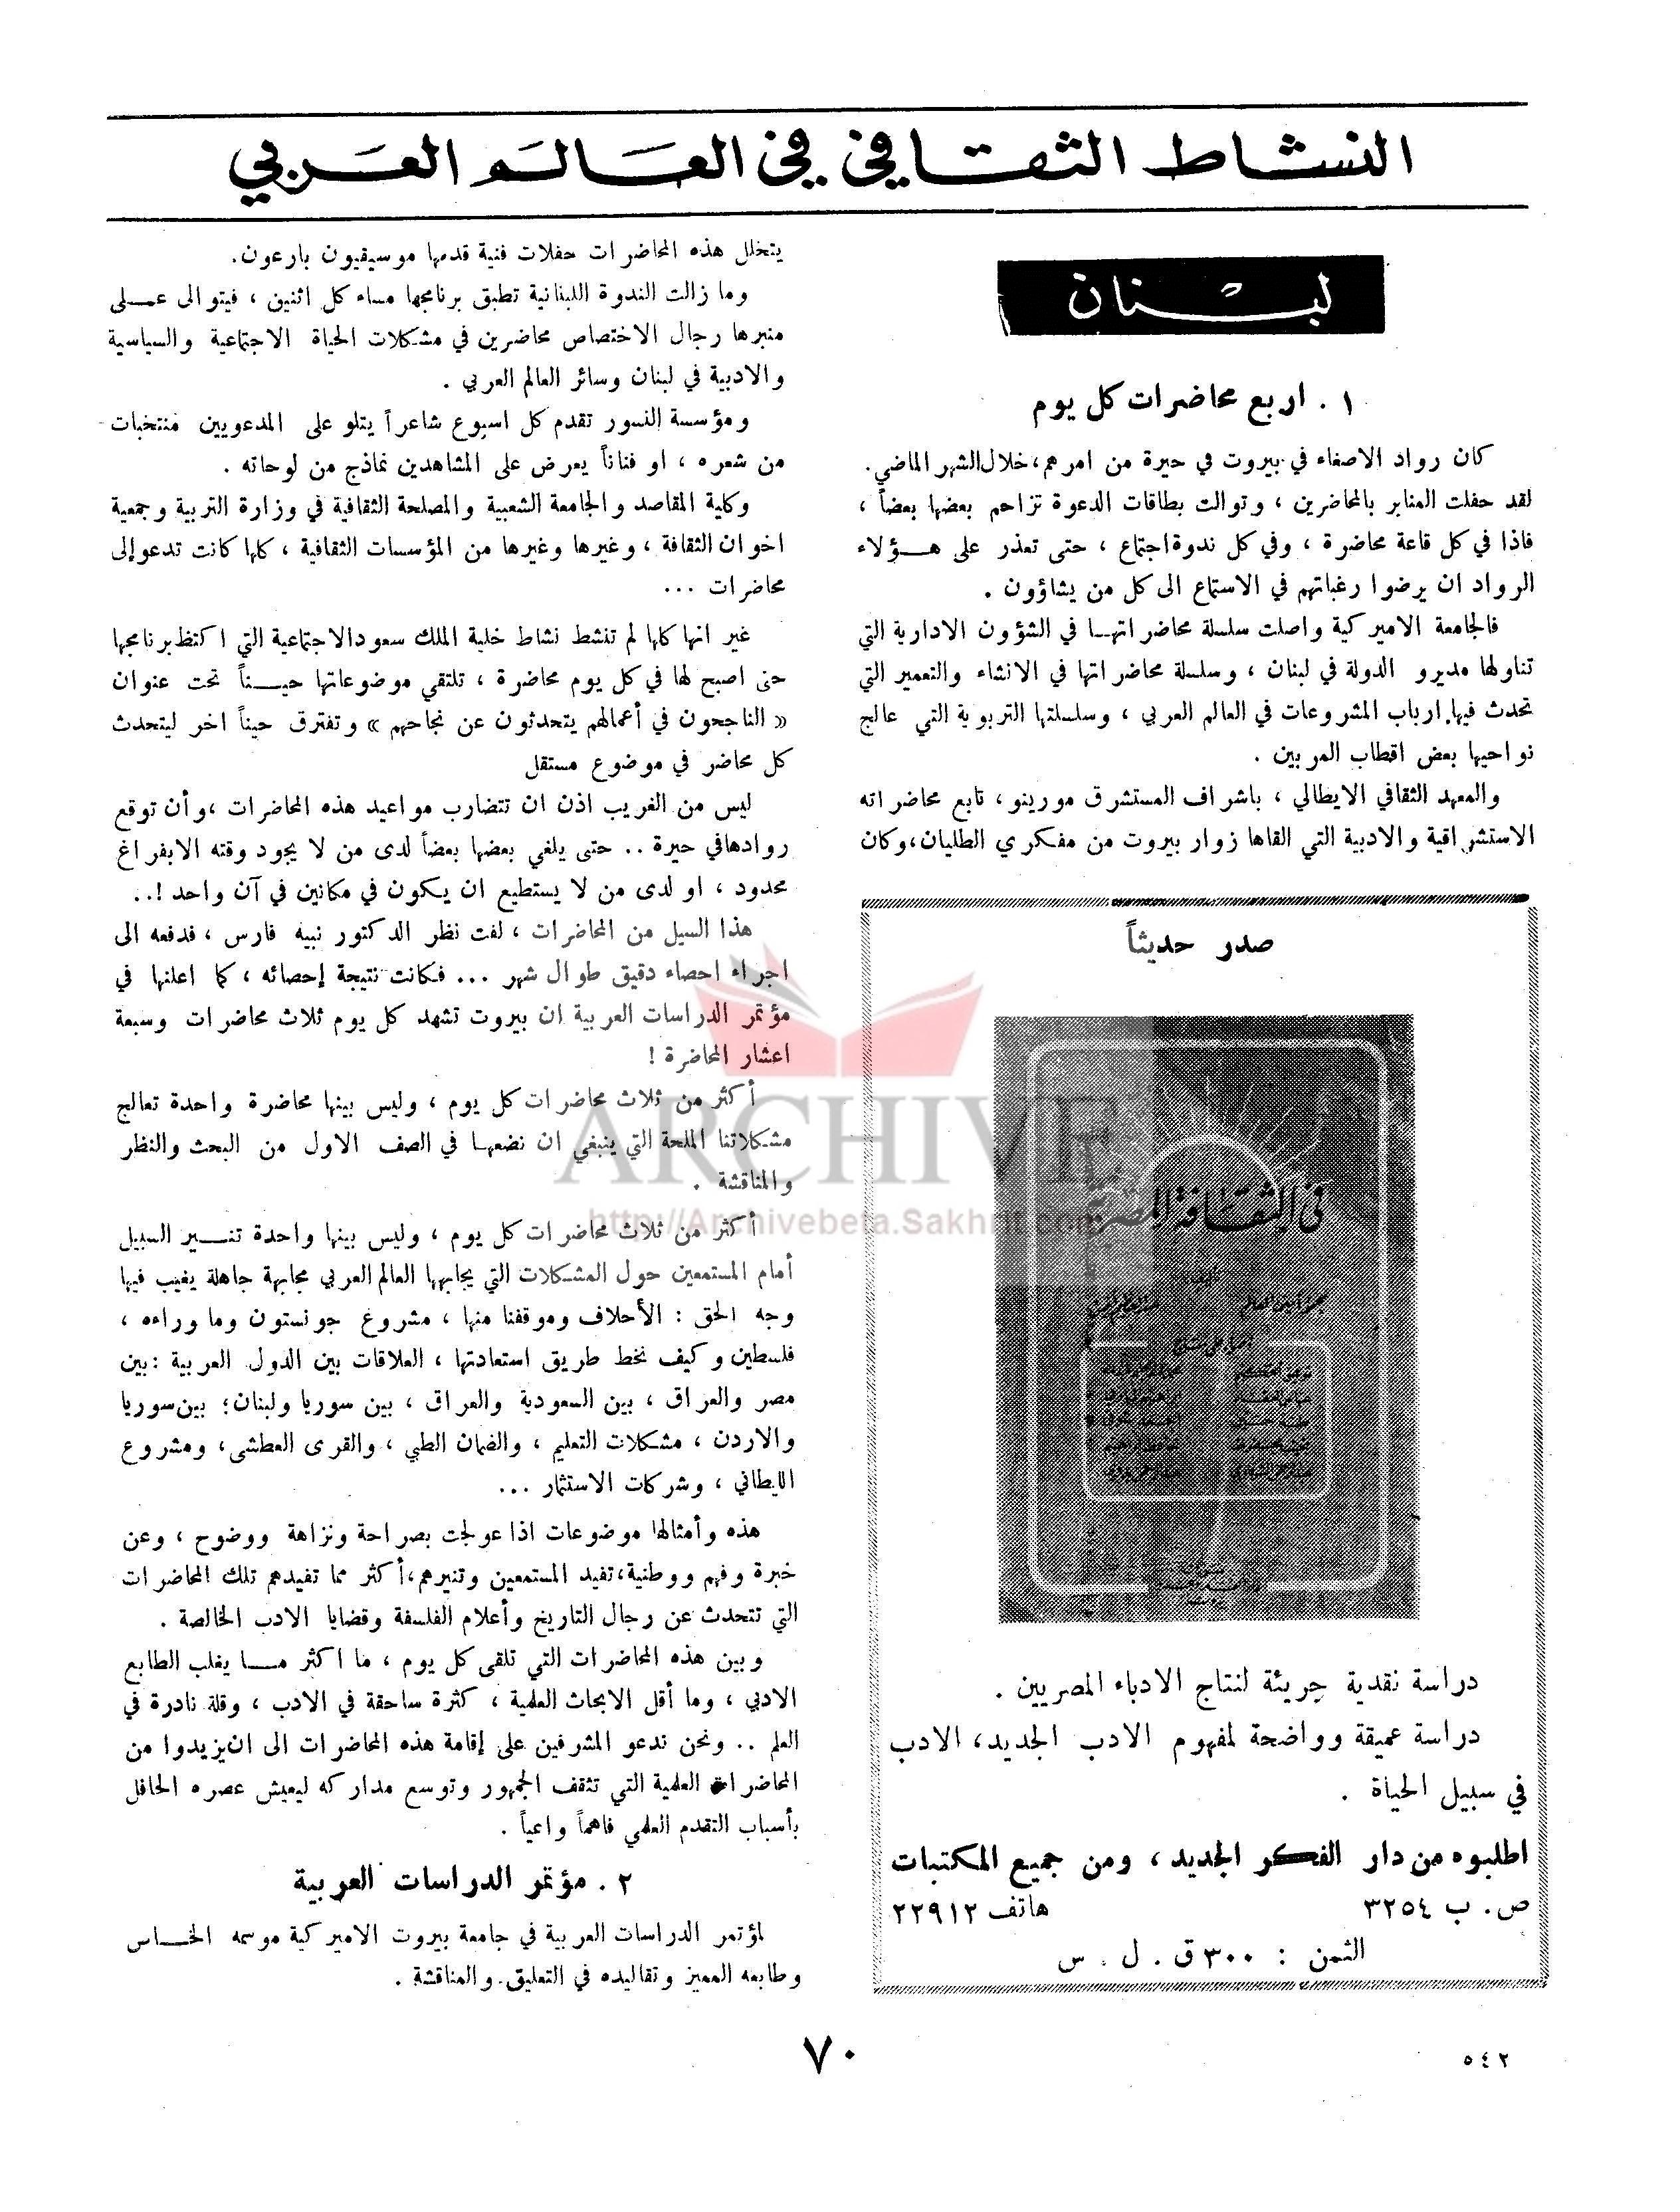 النشاط الثقافي في العالم العربي
لبنان
١ . اربع محاضرات كل يوم
كان رواد الاصغاء في بيروت في حيرة من امرهم، خلال الشهر الماضي.
لقد حفلت المنابر بالمحاضرين ، وتوالت بطاقات الدعوة تزاحم بعضها بعضاً ،
فاذا في كل قاعة محاضرة ، وفي كل ندوة اجتماع ، حتى تعذر على هؤلاء
الرواد ان يرضوا رغباتهم في الاستماع الى كل من يشاؤون .
فالجامعة الاميركية واصلت سلسلة محاضراتها في الشؤون الادارية التي
تناولها مديرو الدولة في لبنان ، وسلسلة محاضراتها في الانشاء والتعمير التي
تحدث فيها ارباب المشروعات في العالم العربي ، وسلسلتها التربوية التي عالج
نواحيها بعض اقطاب المربين .
والمعهد الثقافي الايطالي ، باشراف المستشرق مورينو، تابع محاضراته
الاستشراقية والادبية التي القاها زوار بيروت من مفكري الطليان، وكان
صدر حديثاً
في الثقافة المصرية
دراسة نقدية جريئة لنتاج الادباء المصريين .
دراسة عميقة وواضحة لمفهوم الادب الجديد، الادب
في سبيل الحياة .
اطلبوه من دار الفكر الجديد ، ومن جميع المكتبات
ص. ب ٣٢٥٤ هاتف ٢٢٩١٢
الثمن : ٣٠٠ ق . ل . س
يتخلل هذه المحاضرات حفلات فنية قدمها موسيقيون بارعون.
وما زالت الندوة اللبنانية تطبق برنامجها مساء كل اثنين ، فيتوالى على
منبرها رجال الاختصاص محاضرين في مشكلات الحياة الاجتماعية والسياسية
والادبية في لبنان وسائر العالم العربي .
ومؤسسة النسور تقدم كل اسبوع شاعراً يتلو على المدعويين منتخبات
من شعره ، او فناناً يعرض على المشاهدين نماذج من لوحاته .
وكلية المقاصد والجامعة الشعبية والمصلحة الثقافية في وزارة التربية وجمعية
اخوان الثقافة ، وغيرها وغيرها من المؤسسات الثقافية ، كلها كانت تدعو إلى
محاضرات ...
غير انها كلها لم تنشط نشاط خلية الملك سعود الاجتماعية التي اكتظ برنامجها
حتى اصبح لها في كل يوم محاضرة ، تلتقي موضوعاتها حيناً تحت عنوان
« الناجحون في أعمالهم يتحدثون عن نجاحهم » وتفترق حيناً اخر ليتحدث
كل محاضر في موضوع مستقل
ليس من الغريب اذن ان تتضارب مواعيد هذه المحاضرات ،وأن توقع
روادها في حيرة .. حتى يلغي بعضها بعضاً لدى من لا يجود وقته الا بفراغ
محدود ، او لدى من لا يستطيع ان يكون في مكانين في آن واحد !..
هذا السيل من المحاضرات ، لفت نظر الدكتور نبيه فارس ، فدفعه الى
اجراء احصاء دقيق طوال شهر ... فكانت نتيجة إحصائه ، كما اعلنها في
مؤتمر الدراسات العربية ان بيروت تشهد كل يوم ثلاث محاضرات وسبعة
اعشار المحاضرة !
أكثر من ثلاث محاضرات كل يوم ، وليس بينها محاضرة واحدة تعالج
مشكلاتنا الملحة التي ينبغي ان نضعها في الصف الاول من البحث والنظر
والمناقشة .
أكثر من ثلاث محاضرات كل يوم ، وليس بينها واحدة تنير السبيل
أمام المستمعين حول المشكلات التي يجابهها العالم العربي مجابهة جاهلة يغيب فيها
وجه الحق : الأحلاف وموقفنا منها ، مشروع جونستون وما وراءه ،
فلسطين وكيف نخط طريق استعادتها ، العلاقات بين الدول العربية : بين
مصر والعراق ، بين السعودية والعراق ، بين سوريا ولبنان؛ بين سوريا
والاردن ، مشكلات التعليم ، والضمان الطبي ، والقرى العطشى، ومشروع
الليطاني ، وشركات الاستثمار ...
هذه وأمثالها موضوعات اذا عولجت بصراحة ونزاهة ووضوح ، وعن
خبرة وفهم ووطنية، تفيد المستمعين وتنيرهم، أكثر مما تفيدهم تلك المحاضرات
التي تتحدث عن رجال التاريخ وأعلام الفلسفة وقضايا الادب الخالصة .
وبين هذه المحاضرات التي تلقى كل يوم ، ما اكثر ما يغلب الطابع
الادبي ، وما أقل الابحاث العلمية ، كثرة ساحقة في الادب ، وقلة نادرة في
العلم .. ونحن ندعو المشرفين على إقامة هذه المحاضرات الى ان يزيدوا من
المحاضرات العلمية التي تثقف الجمهور وتوسع مداركه ليعيش عصره الحافل
بأسباب التقدم العلمي فاهماً واعياً .
٢ . مؤتمر الدراسات العربية
لمؤتمر الدراسات العربية في جامعة بيروت الاميركية موسمه الخاس
وطابعه المميز وتقاليده في التعليق والمناقشة .
ARCHIVE
http://Archivebeta.Sakhrit.com
٧٠
٥٤٢